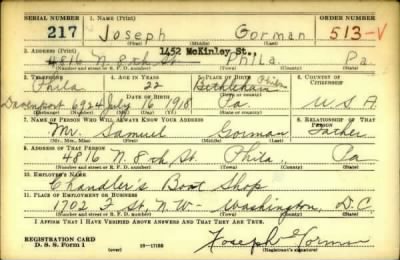 SERIAL NUMBER 1. NAME (Print) ORDER NUMBER
217 Joseph Gorman 513-V
(First) (Middle) (Last)
1452 McKinley St.,
2. ADDRESS (Print)
4816 N. 8th St. Phila. Pa.
(Number and street or R. F. D. number) (Town) (County) (State)
3. TELEPHONE 4. AGE IN YEARS 5. PLACE OF BIRTH 6. COUNTRY OF CITIZENSHIP
Phila 22 Bethlehem
Davenport 6924 July 16 1918 Pa. U.S.A.
7. NAME OF PERSON WHO WILL ALWAYS KNOW YOUR ADDRESS 8. RELATIONSHIP OF THAT PERSON
Mr. Samuel Gorman Father
(Mr., Mrs., Miss) (First) (Middle) (Last)
9. ADDRESS OF THAT PERSON
4816 N. 8th St. Phila., Pa
(Number and street or R. F. D. number) (Town) (County) (State)
10. EMPLOYER'S NAME
Chandler's Boot Shop
11. PLACE OF EMPLOYMENT OR BUSINESS
1702 F St. N.W. Washington, D.C.
(Number and street or R. F. D. number) (Town) (County) (State)
I AFFIRM THAT I HAVE VERIFIED ABOVE ANSWERS AND THAT THEY ARE TRUE.
REGISTRATION CARD
D. S. S. Form 1 (over) 16-17105 Joseph Gorman